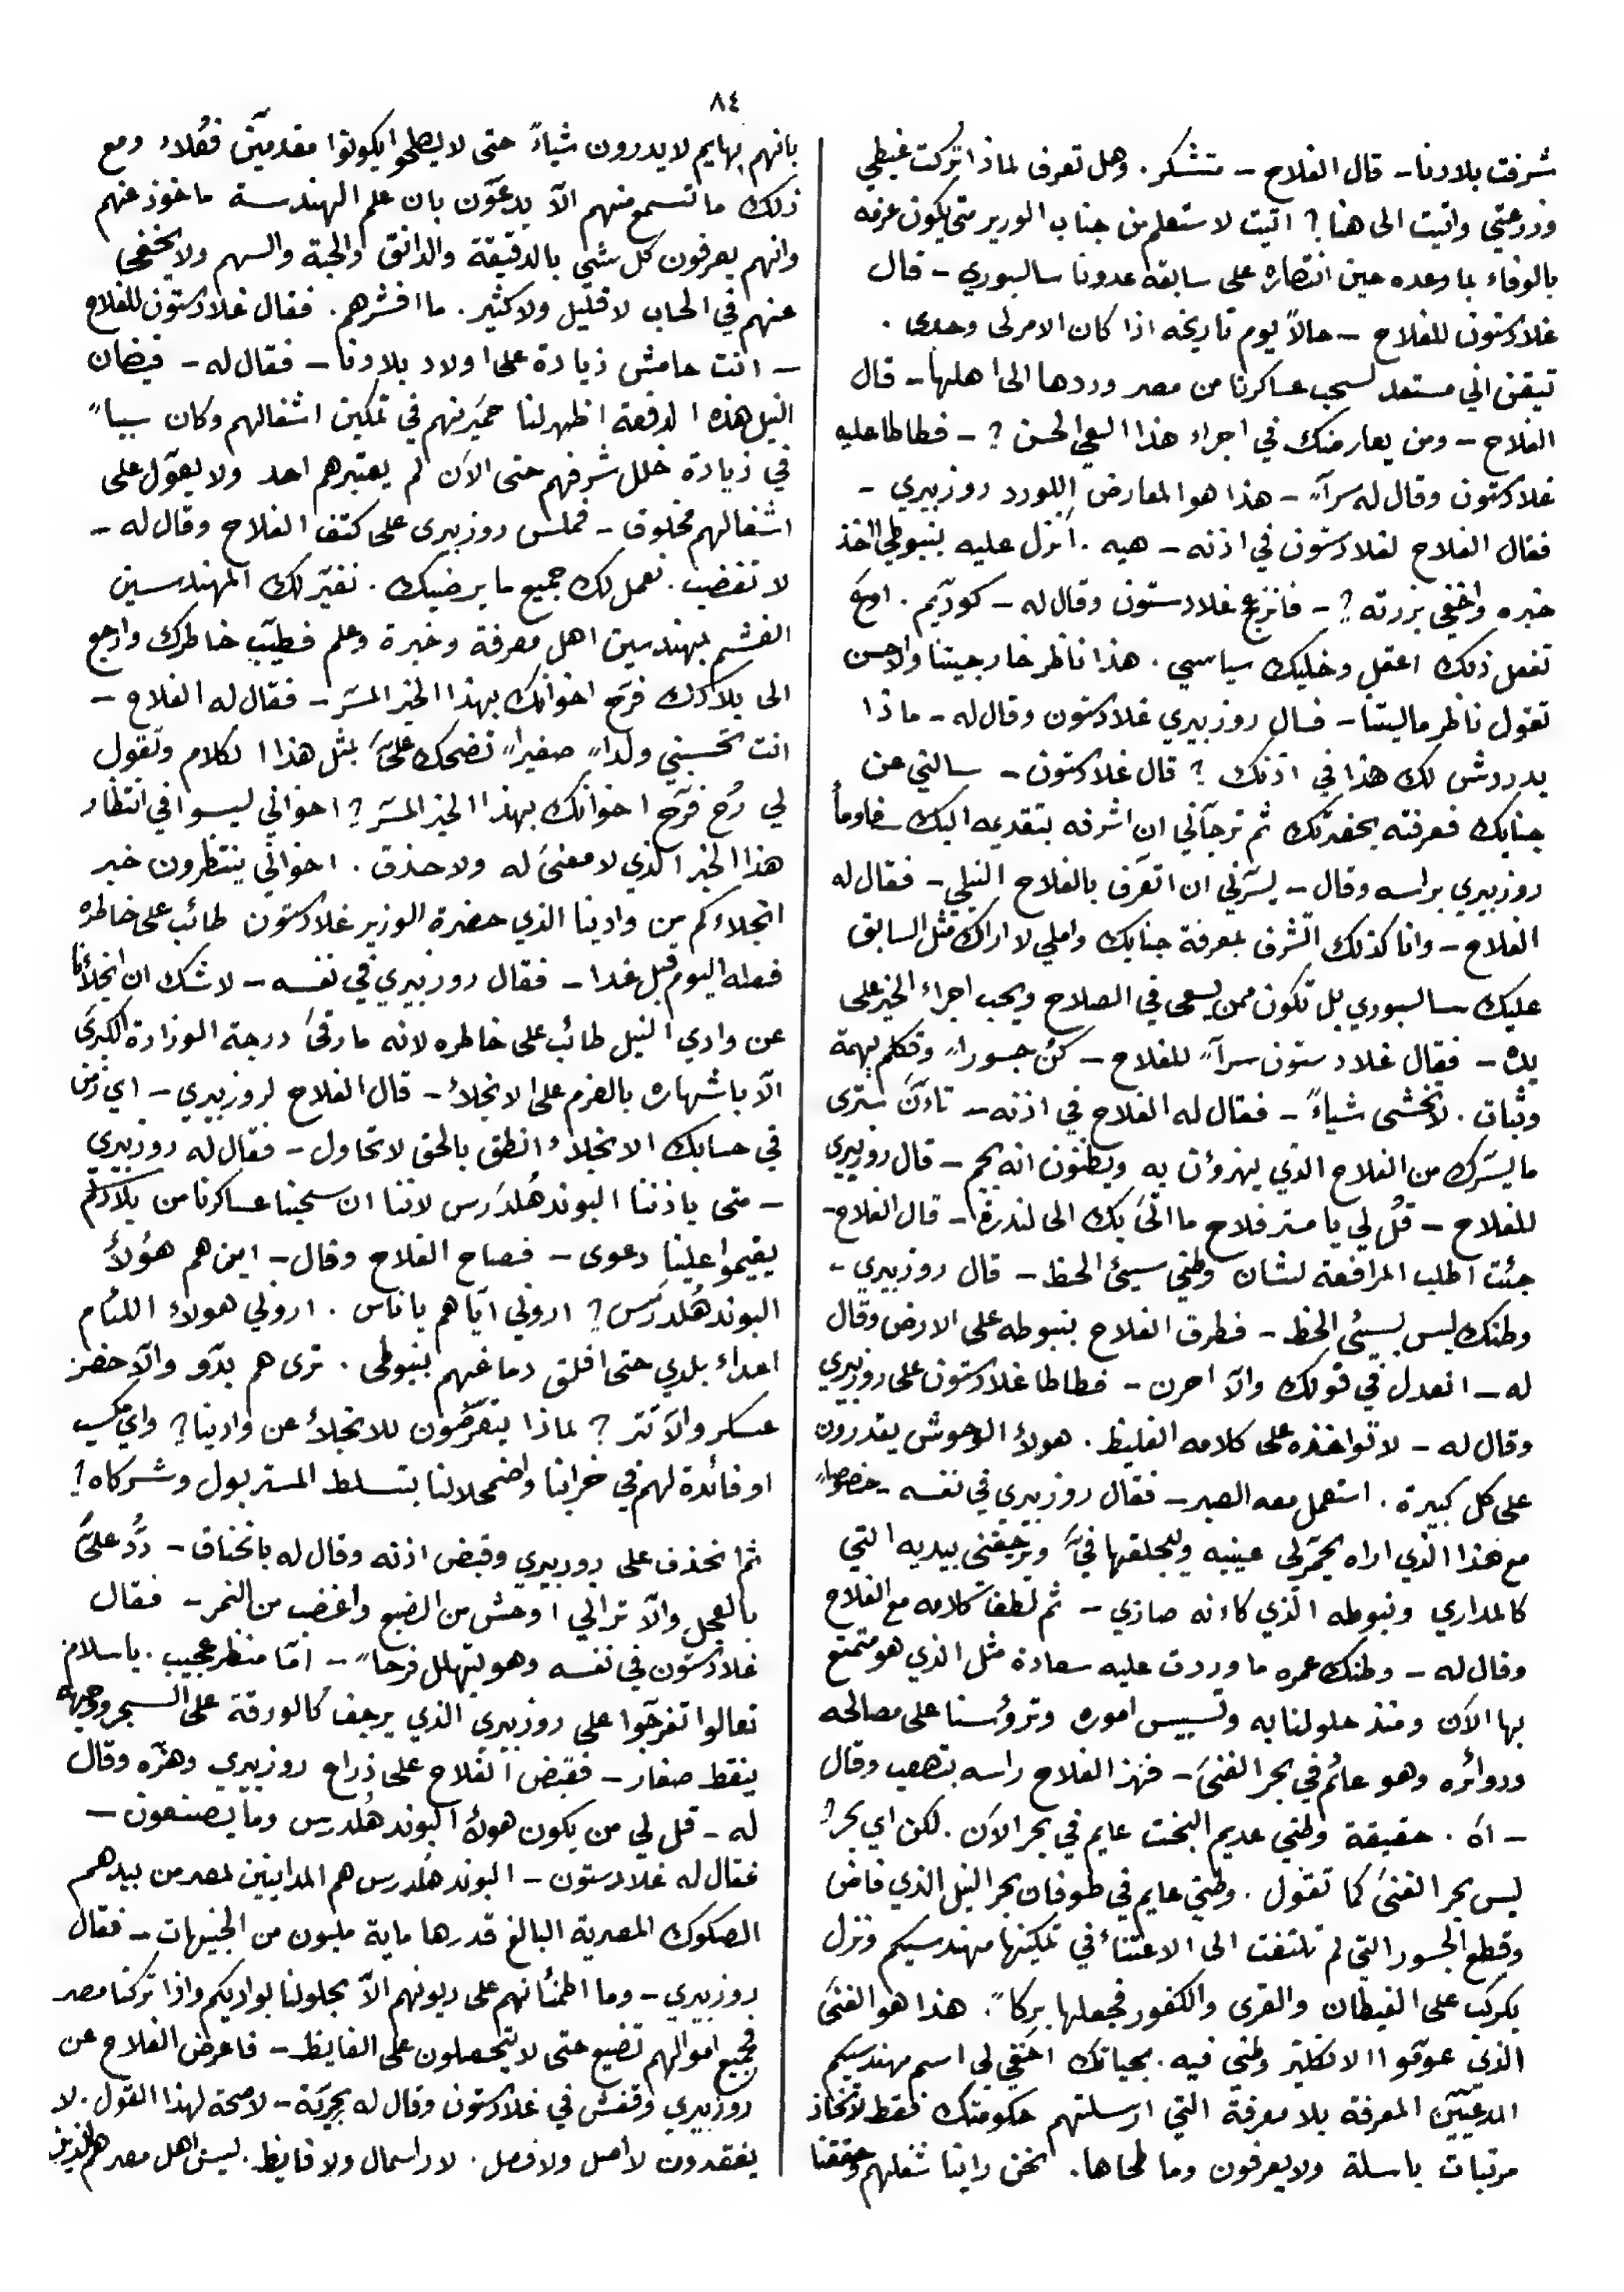 ٨٤
شرفت بلادنا - قال الفلاح - متشكر. وهل تعرف لماذا تركت غيطي
وزرعتي واتيت الى هنا؟ اتيت لاستعلم من جناب الوزير متى يكون عزمه
بالوفاء بما وعده حين انتصاره على سابقه عدونا سالسبوري - قال
غلادستون للفلاح - حالاً يوم تاريخه اذا كان الامر لي وحدي.
تيقن اني مستعد لسحب عساكرنا من مصر وردها الى اهلها - قال
الفلاح - ومن يعارضك في اجراء هذا السعي الحسن؟ - فطاطا عليه
غلادستون وقال له سراً - هذا هو المعارض اللورد روزبيري -
فقال الفلاح لغلادستون في اذنه - هيه. أنزل عليه بنبوطي اخذ
خبره واخفي بزرته؟ - فانزع غلادستون وقال له - كوديم. اوع
تفعل ذلك اعقل وخليك سياسي. هذا ناظر خارجيتنا والاحسن
تقول ناظر ماليتنا - فسال روزبيري غلادستون وقال له - ماذا
يدردش لك هذا في اذنك؟ قال غلادستون - سالني عن
جنابك فعرفته بحضرتك ثم ترجاني ان اشرفه بتقديمه اليك فاوما
روزبيري براسه وقال - يسرني ان اتعرف بالفلاح النيلي - فقال له
الفلاح - وانا كذلك اتشرف بمعرفة جنابك واملي لا اراك مثل السابق
عليك سالسبوري بل تكون ممن يسعى في الصلاح ويحب اجراء الخير على
يده - فقال غلادستون سراً للفلاح - كن جسوراً وتكلم بهمة
وثبات. لا تخشى شياءً - فقال له الفلاح في اذنه - تاءنَ سترى
ما يسرك من الفلاح الذي يهزؤن به ويظنون انه بجم - قال روزبيري
للفلاح - قل لي يا مستر فلاح ما اتى بك الى لندرة - قال الفلاح -
جئت اطلب المرافعة لشان وطني سيئ الحظ - قال روزبيري -
وطنك ليس بسيئ الحظ - فطرق الفلاح بنبوطه على الارض وقال
له - انعدل في قولك والا احرن - فطاطا غلادستون على روزبيري
وقال له - لا تواخذه على كلامه الغليظ. هولاء الوحوش يقدرون
على كل كبيرة. استعمل معه الصبر - فقال روزبيري في نفسه - خصوصاً
مع هذا الذي اراه يحمر لي عينيه ويبحلقها في ويرجفني بيديه التي
كالمداري ونبوطه الذي كاءنه صاري - ثم لطف كلامه مع الفلاح
وقال له - وطنك عمره ما وردت عليه سعادة مثل الذي هو متمتع
بها الان ومنذ حلولنا به وتسييس اموره وترؤسنا على مصالحه
ودوائره وهو عائم في بحر الغنى - فهز الفلاح راسه بتصعب وقال
- اه. حقيقة وطني عديم البخت عايم في بحر الان. لكن اي بحر؟
ليس بحر الغنى كما تقول. وطني عايم في طوفان بحر النيل الذي فاض
وقطع الجسور التي لم تلتفت الى الاعتناء في تمكينها مهندسيكم ونزل
يكركب على الغيطان والقرى والكفور فجعلها بركاً. هذا هو الغنى
الذي عوموا الانكليز وطني فيه. بحياتك اخفي لي اسم مهندسيكم
المدعيين المعرفة بلا معرفة التي ارسلتهم حكومتك فقط لاتخاذ
مرتبات باسلة ولا يعرفون وما طحاها. نحن راينا شغلهم وحققنا
بانهم بهايم لا يدرون شياءً حتى لا يصلحوا يكونوا مقدمين فعلاء ومع
ذلك ما تسمع منهم الا يدعون بان علم الهندسة ماخوذ عنهم
وانهم يعرفون كل شي بالدقيقة والدانق والحبة والسهم ولا يخفى
عنهم في الحساب لا قليل ولا كثير. ما افشرهم. فقال غلادستون للفلاح
- انت حامش زيادة على اولاد بلادنا - فقال له - فيضان
النيل هذه الدفعة اظهر لنا حميرنهم في تمكين اشغالهم وكان سبباً
في زيادة خلل شرفهم حتى الان لم يعتبرهم احد ولا يعول على
اشغالهم مخلوق - فملس روزبيري على كتف الفلاح وقال له -
لا تغضب. نعمل لك جميع ما يرضيك. نغير لك المهندسين
الغشم بمهندسين اهل معرفة وخبرة وعلم فطيب خاطرك وارجع
الى بلادك فرح اخوانك بهذا الخبر المسر - فقال له الفلاح -
انت تحسبني ولداً صغيراً تضحك علي بمثل هذا الكلام وتقول
لي رُح فرح اخوانك بهذا الخبر المسر؟ اخواني ليسوا في انتظار
هذا الخبر الذي لا معنى له ولا حذق. اخواني ينتظرون خبر
انجلاءكم من وادينا الذي حضرة الوزير غلادستون طائب على خاطره
فعله اليوم قبل غدا - فقال روزبيري في نفسه - لا شك ان انجلائنا
عن وادي النيل طائب على خاطره لانه ما رقى درجة الوزارة الكبرى
الا باشهاره بالعزم على الانجلاء - قال الفلاح لروزبيري - اي زمن
في حسابك الانجلاء انطق بالحق لا تحاول - فقال له روزبيري
- متى ياذننا البوندهُلدَرس لاننا ان سحبنا عساكرنا من بلادكم
يقيموا علينا دعوى - فصاح الفلاح وقال - اين هم هؤلاء
البوندهُلدرس؟ اروني اياهم يا ناس. اروني هولاء اللئام
اعداء بلدي حتى افلق دماغهم بنبوطي. ترى هم بدو والا خضر
عسكر والا تتر؟ لماذا يتعرضون للانجلاء عن وادينا؟ واي مكسب
او فائدة لهم في خرابنا واضمحلالنا بتسلط المستر بول وشركاه؟
ثم انحذف على روزبيري وقبض اذنه وقال له بانخناق - رُدّ عليَّ
بالعجل والا تراني اوحش من الضبع واغضب من النمر - فقال
غلادستون في نفسه وهو يتهلل فرحاً - اما منظر عجيب. يا سلام
تعالوا تفرجوا على روزبيري الذي يرجف كالورقة على السجر ووجهه
ينقط صفار - فقبض الفلاح على ذراع روزبيري وهزه وقال
له - قل لي من يكون هولاء البوندهُلدرس وما يصنعون -
فقال له غلادستون - البوندهُلدرس هم المداينين لمصر من بيدهم
الصكوك المصرية البالغ قدرها ماية مليون من الجنيهات - فقال
روزبيري - وما اطمئنانهم على ديونهم الا بحلولنا بواديكم واذا تركنا مصر
فجميع اموالهم تضيع حتى لا يتحصلون على الفايظ - فاعرض الفلاح عن
روزبيري وقفش في غلادستون وقال له بحرية - لا صحة لهذا القول. لا
يفقدون لا اصل ولا فصل. لا راسمال ولا فايظ. ليس اهل مصر هم الذين